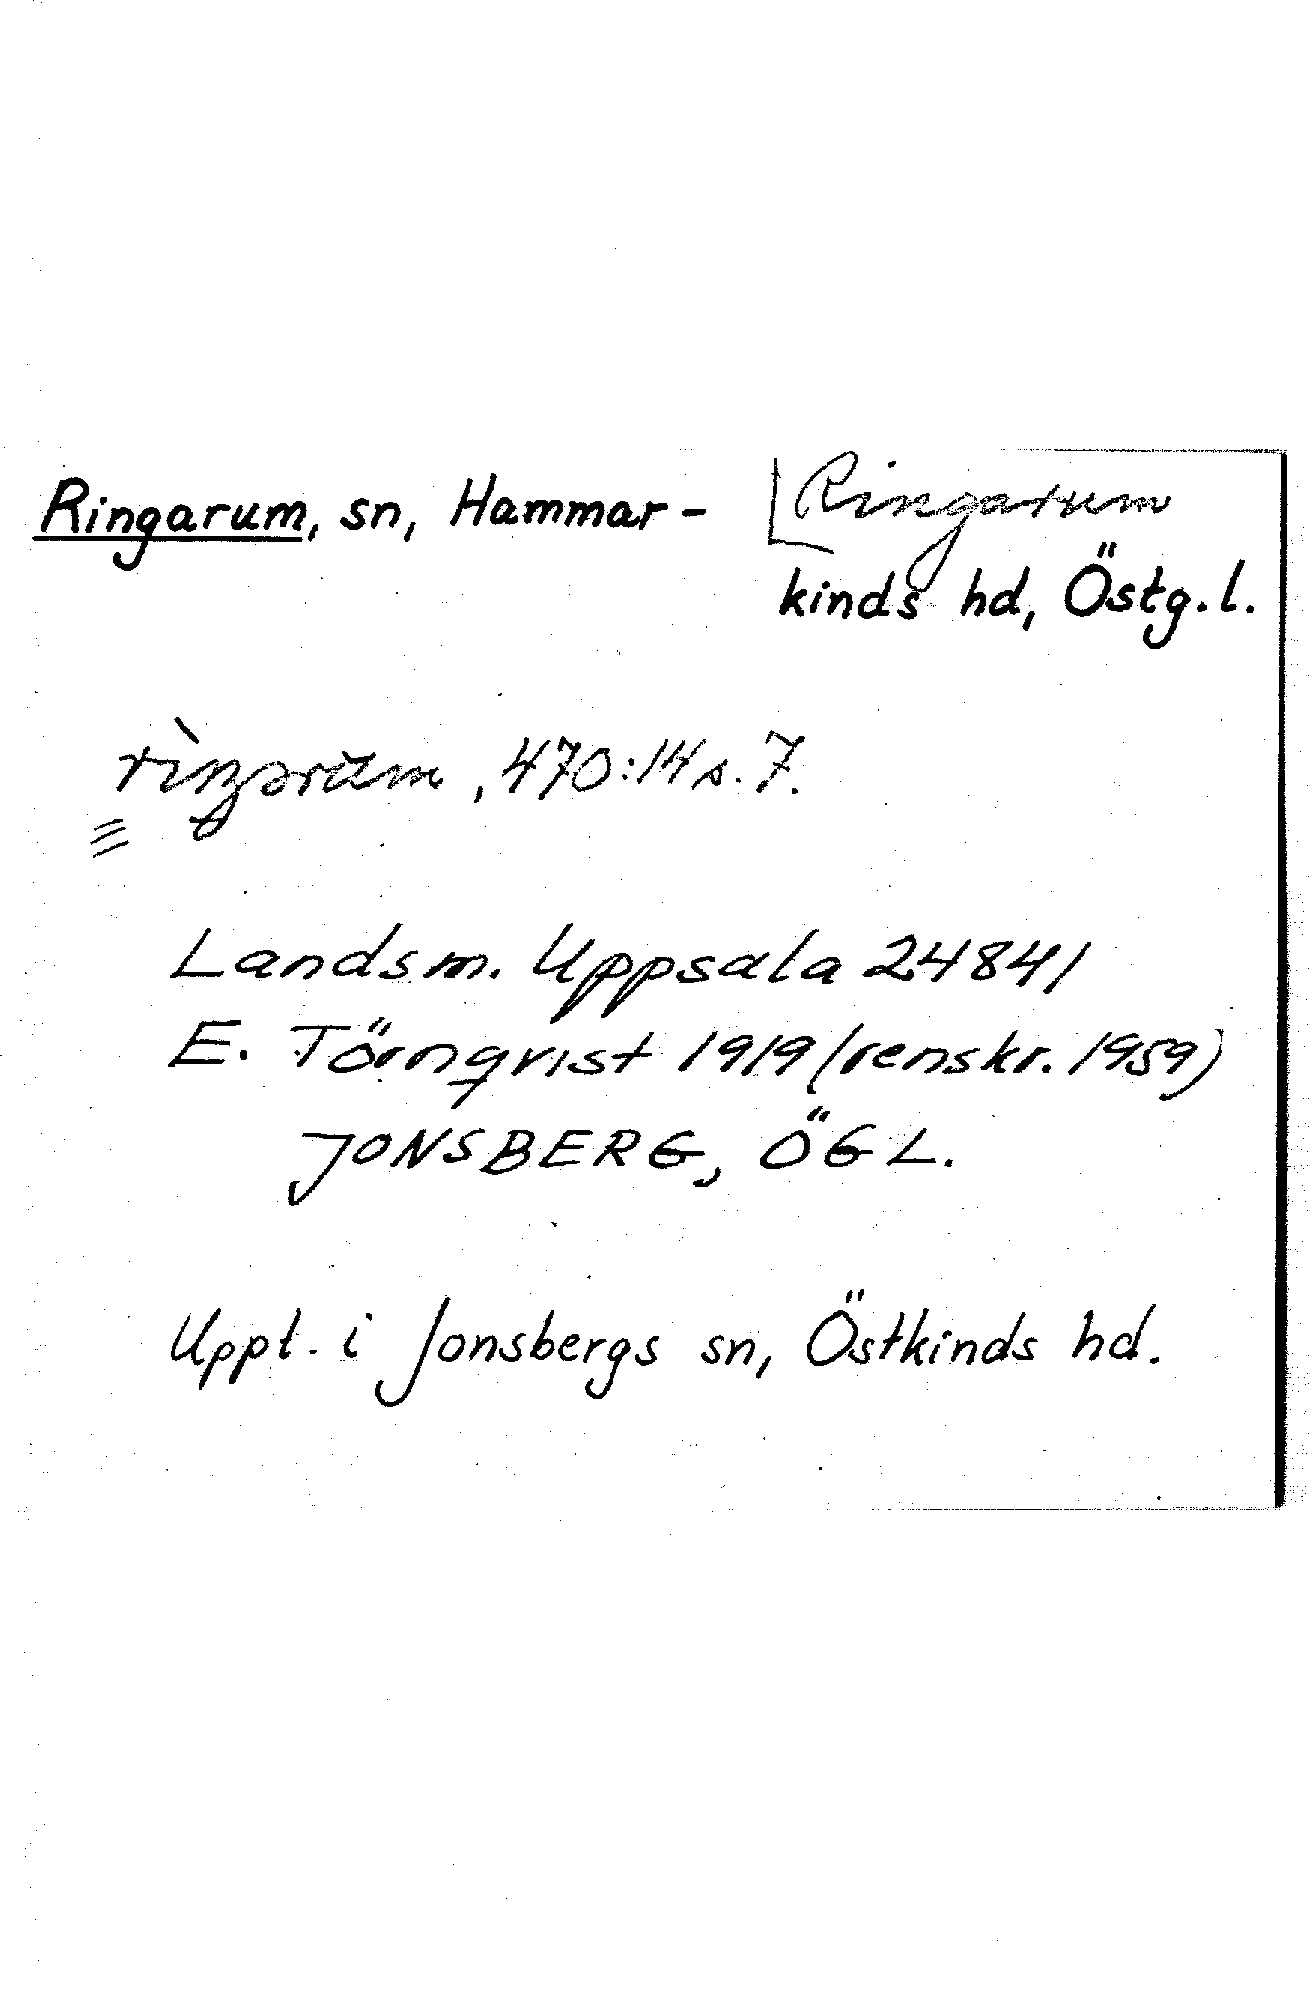 Ringarum, sn, Hammar- Ringarum
kinds hd, Östg.l.
rìŋərùm, 470:14 s. 7.
Landsm. Uppsala 24841
E. Törnqvist 1919 (renskr. 1959)
JONSBERG, ÖGL.
Uppt. i Jonsbergs sn, Östkinds hd.